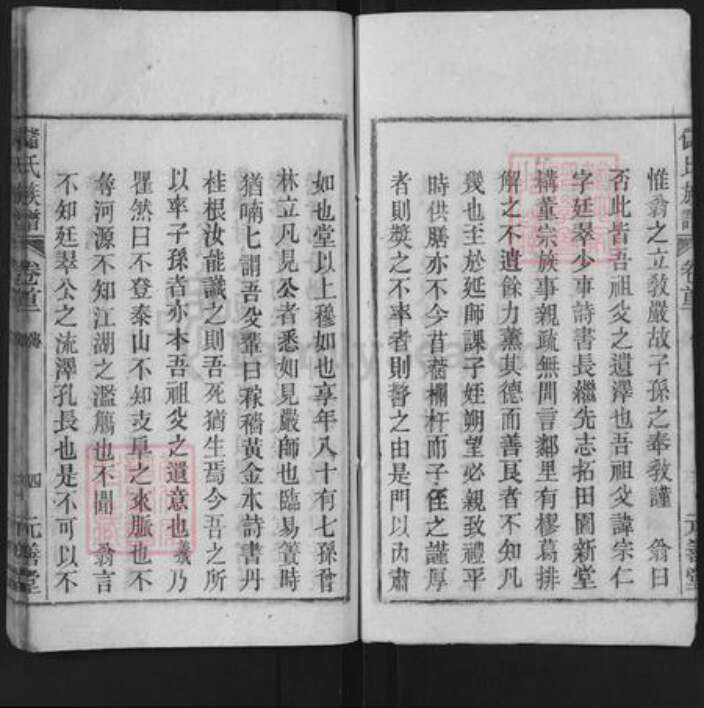 惟翁之立教嚴故子孫之奉教謹　翁曰
否此皆吾祖父之遺澤也吾祖父諱宗仁
字廷翠少事詩書長繼先志拓田園新堂
構董宗族事親疏無間言鄰里有樛葛排
解之不遺餘力薰其德而善良者不知凡
幾也至於延師課子姪朔望必親致禮平
時供膳亦不今苜蓿欄杆而子侄之謹厚
者則獎之不率者則督之由是門以內肅
如也堂以上穆如也享年八十有七孫曾
林立凡見公者悉如見嚴師也臨易簀時
猶喃七謂吾父輩曰稼穡黃金水詩書丹
桂根汝能識之則吾死猶生焉今吾之所
以率子孫者亦本吾祖父之遺意也羲乃
瞿然曰不登泰山不知支阜之來脈也不
尋河源不知江湖之濫觴也不聞　翁言
不知廷翠公之流澤孔長也是不可以不
儲氏族譜　卷首　四　元善堂